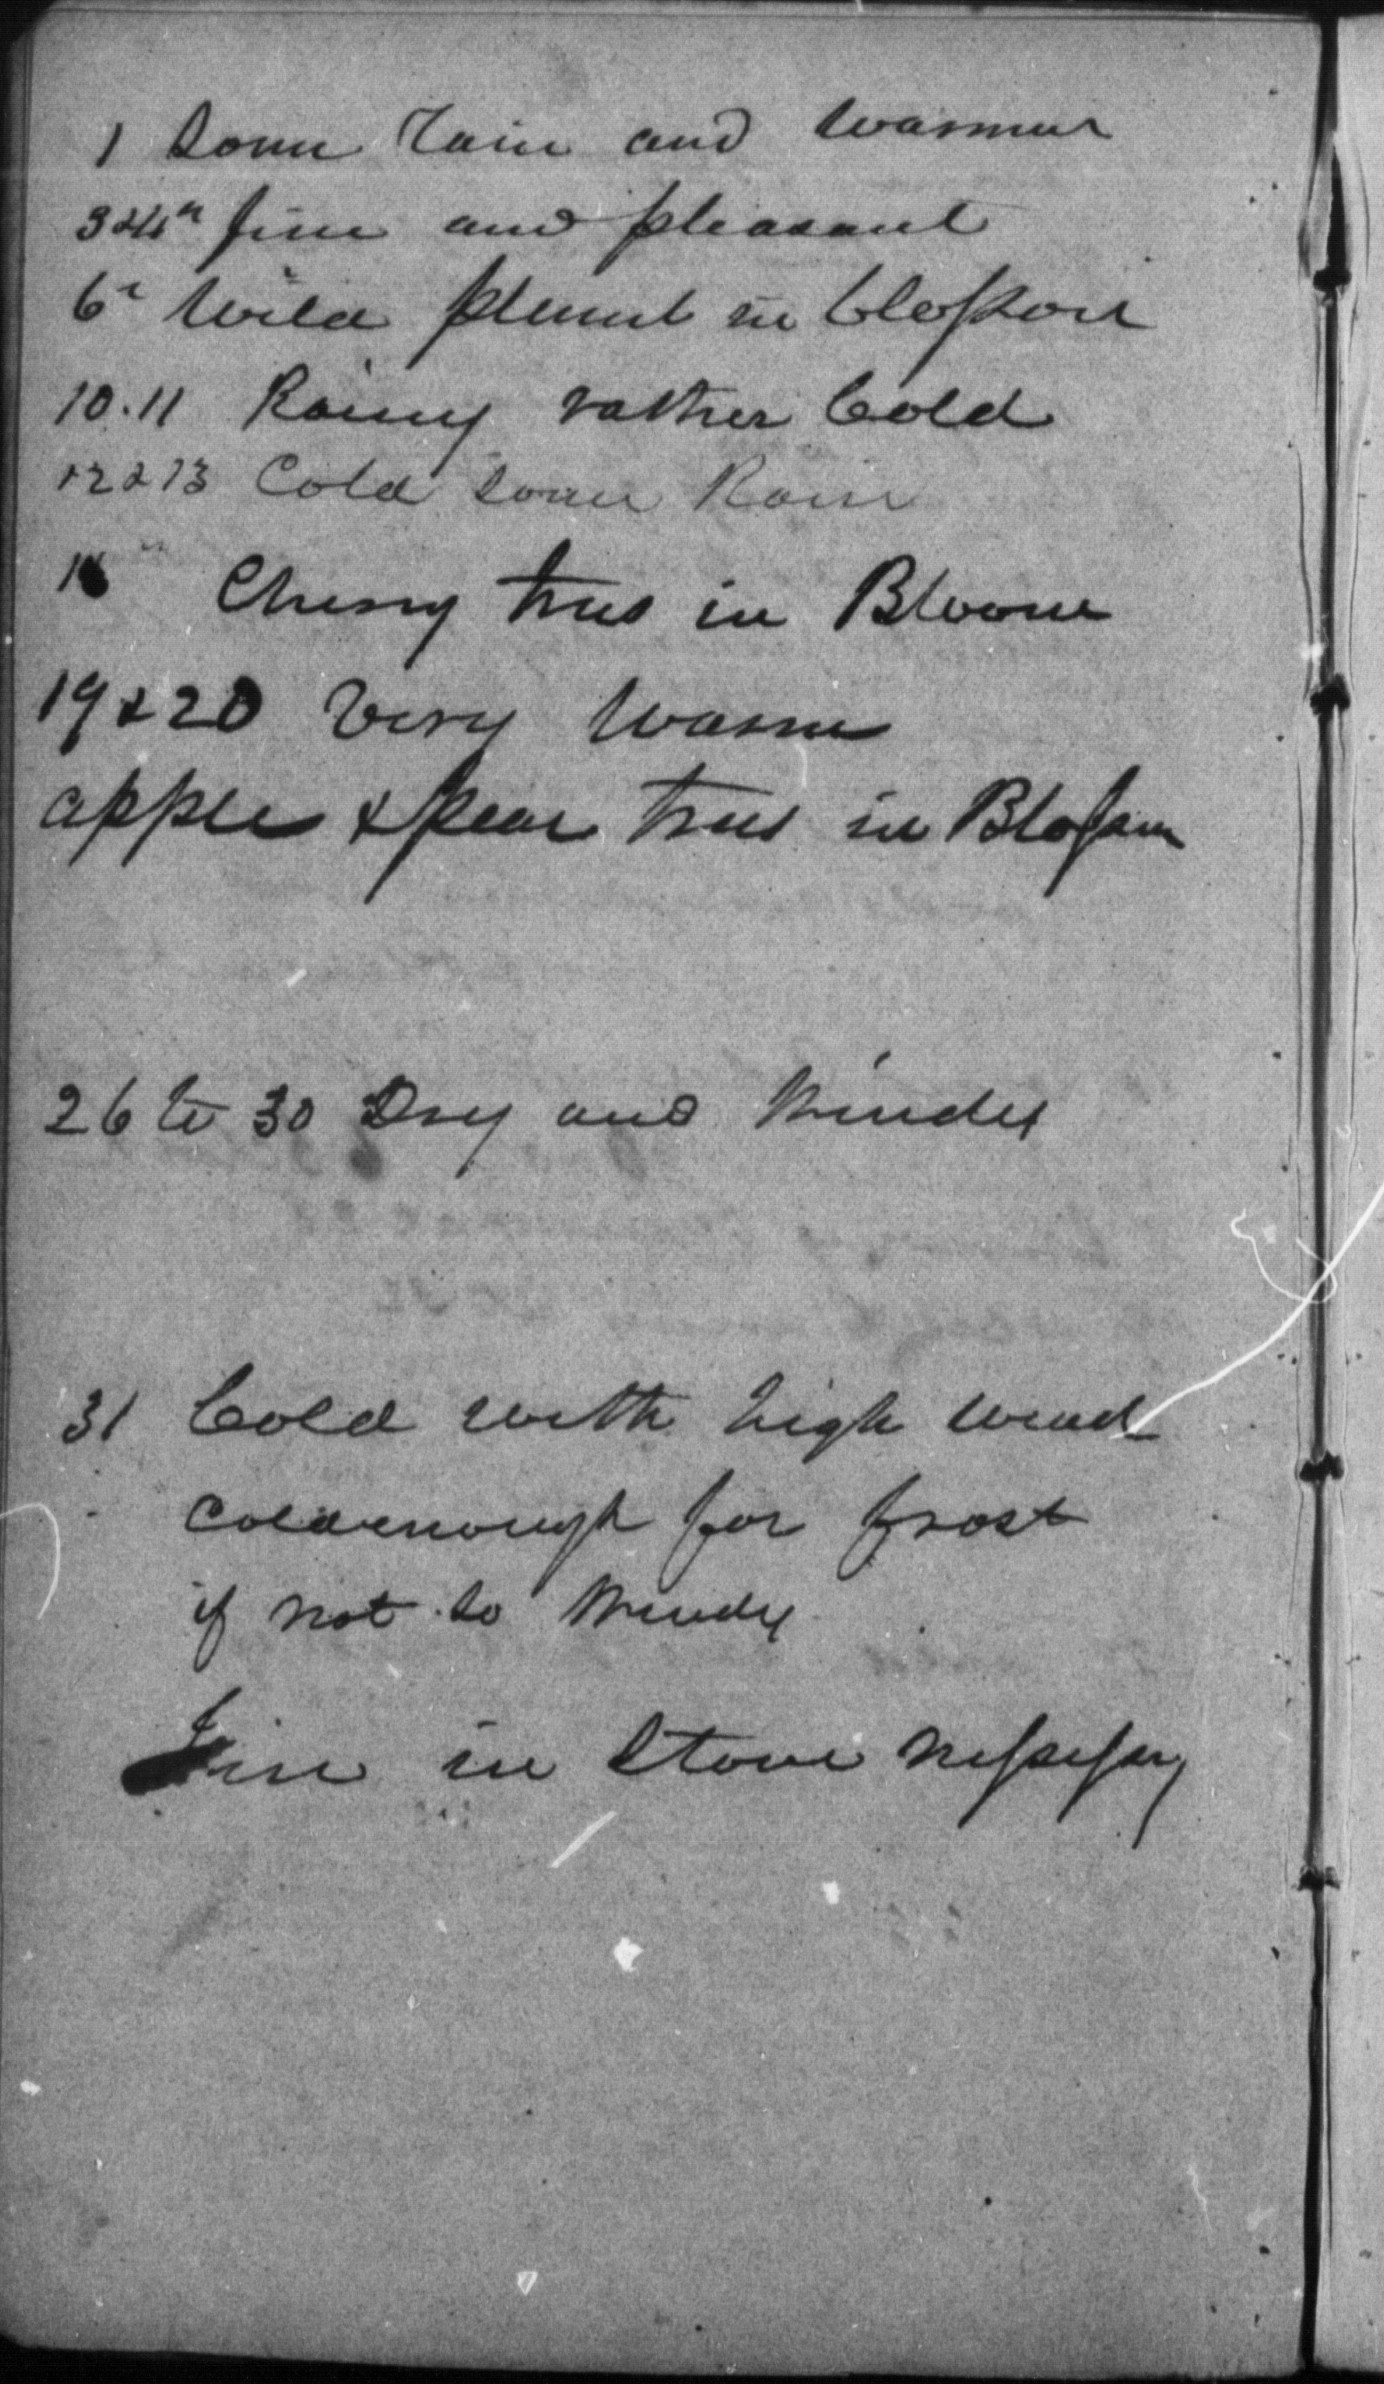 1 Some rain and warmer
3 & 4" fine and pleasant
6" Wild plumb in blossom
10.11 Rainy rather Cold
12 & 13 Cold some Rain
Cherry trees in Bloom
19 & 20 Very Warm
apple & pear trees in Blossom
26 to 30 Dry and Windy
31 Cold with high wind
cold enough for frost
if not so Windy
Fire in Stove nessessary